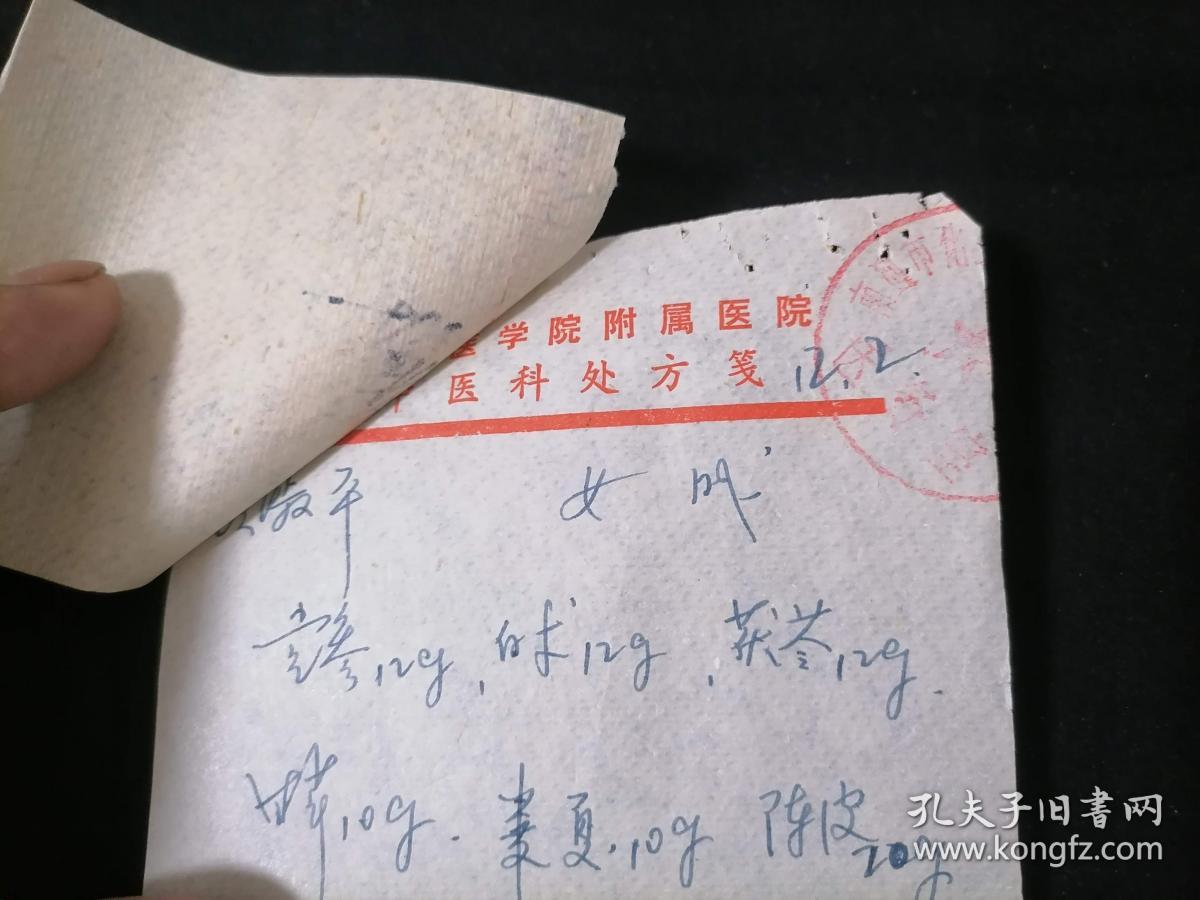 医学院附属医院
医科处方笺 12.2.
平 女 成
党参12g, 白术12g, 茯苓12g.
甘草10g. 姜夏10g 陈皮20g
孔夫子旧书网
www.kongfz.com